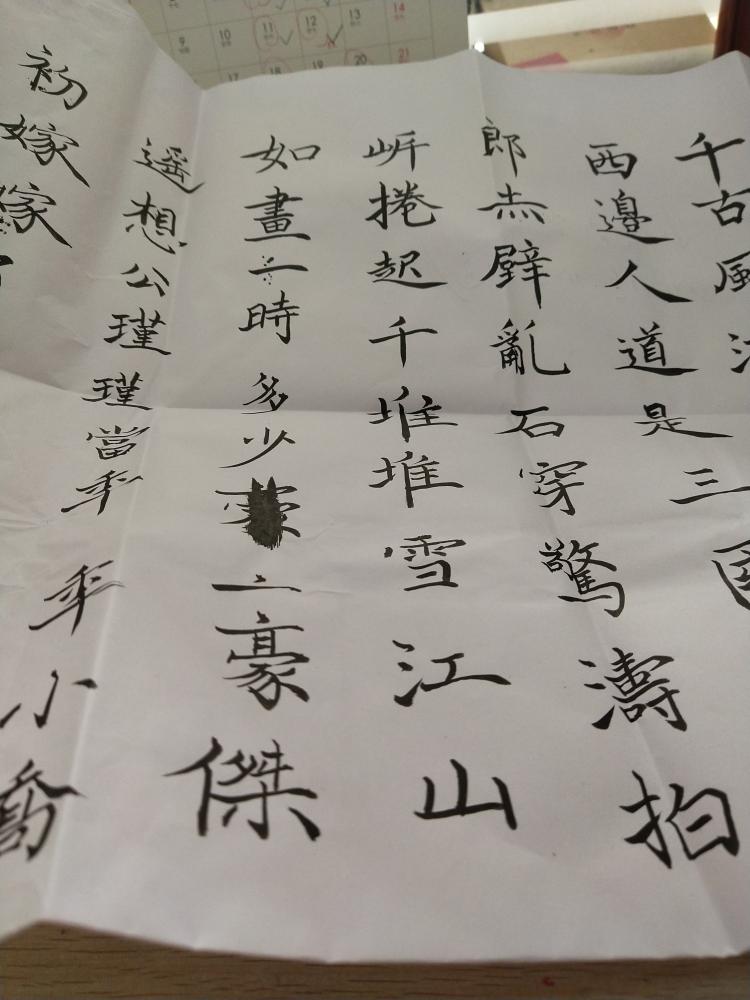 千古風
西邊人道是三国
郎赤壁亂石穿驚濤拍
岍捲起千堆堆雪江山
如畫一時多少亠豪傑
遙想公瑾瑾當年年小喬
初嫁嫁
9 10 11 12 13 14
17 18 19 20 21